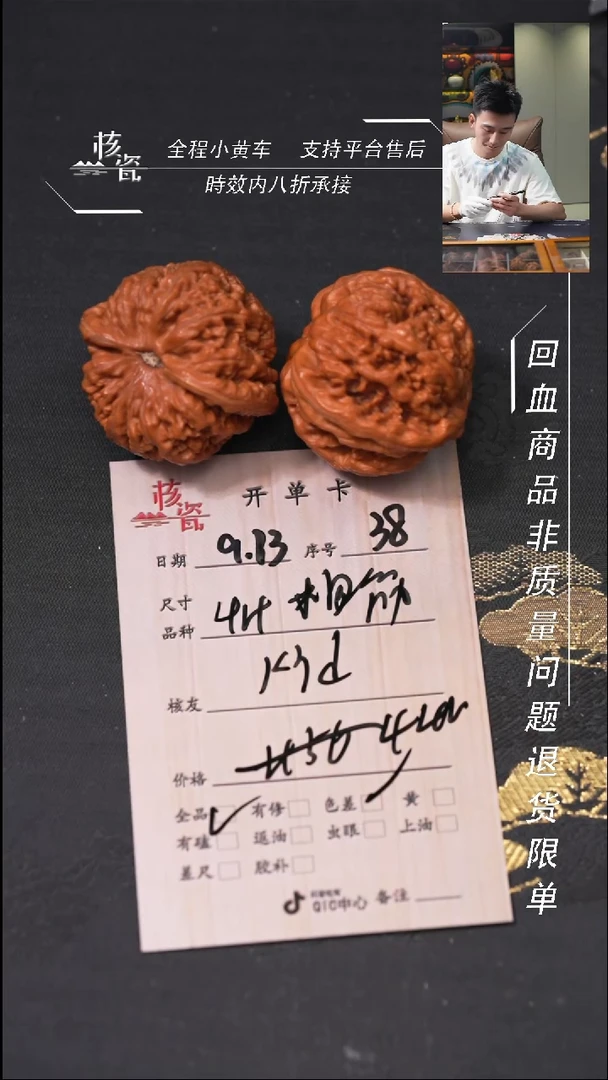 核瓷
全程小黄车 支持平台售后
時效内八折承接
回血商品非质量问题退货限单
核瓷
开单卡
日期 9.13 序号 38
尺寸
品种
核友
价格
全品 有修 色差 黄
有磕 返油 虫眼 上油
差尺 胶补
QIC中心 备注